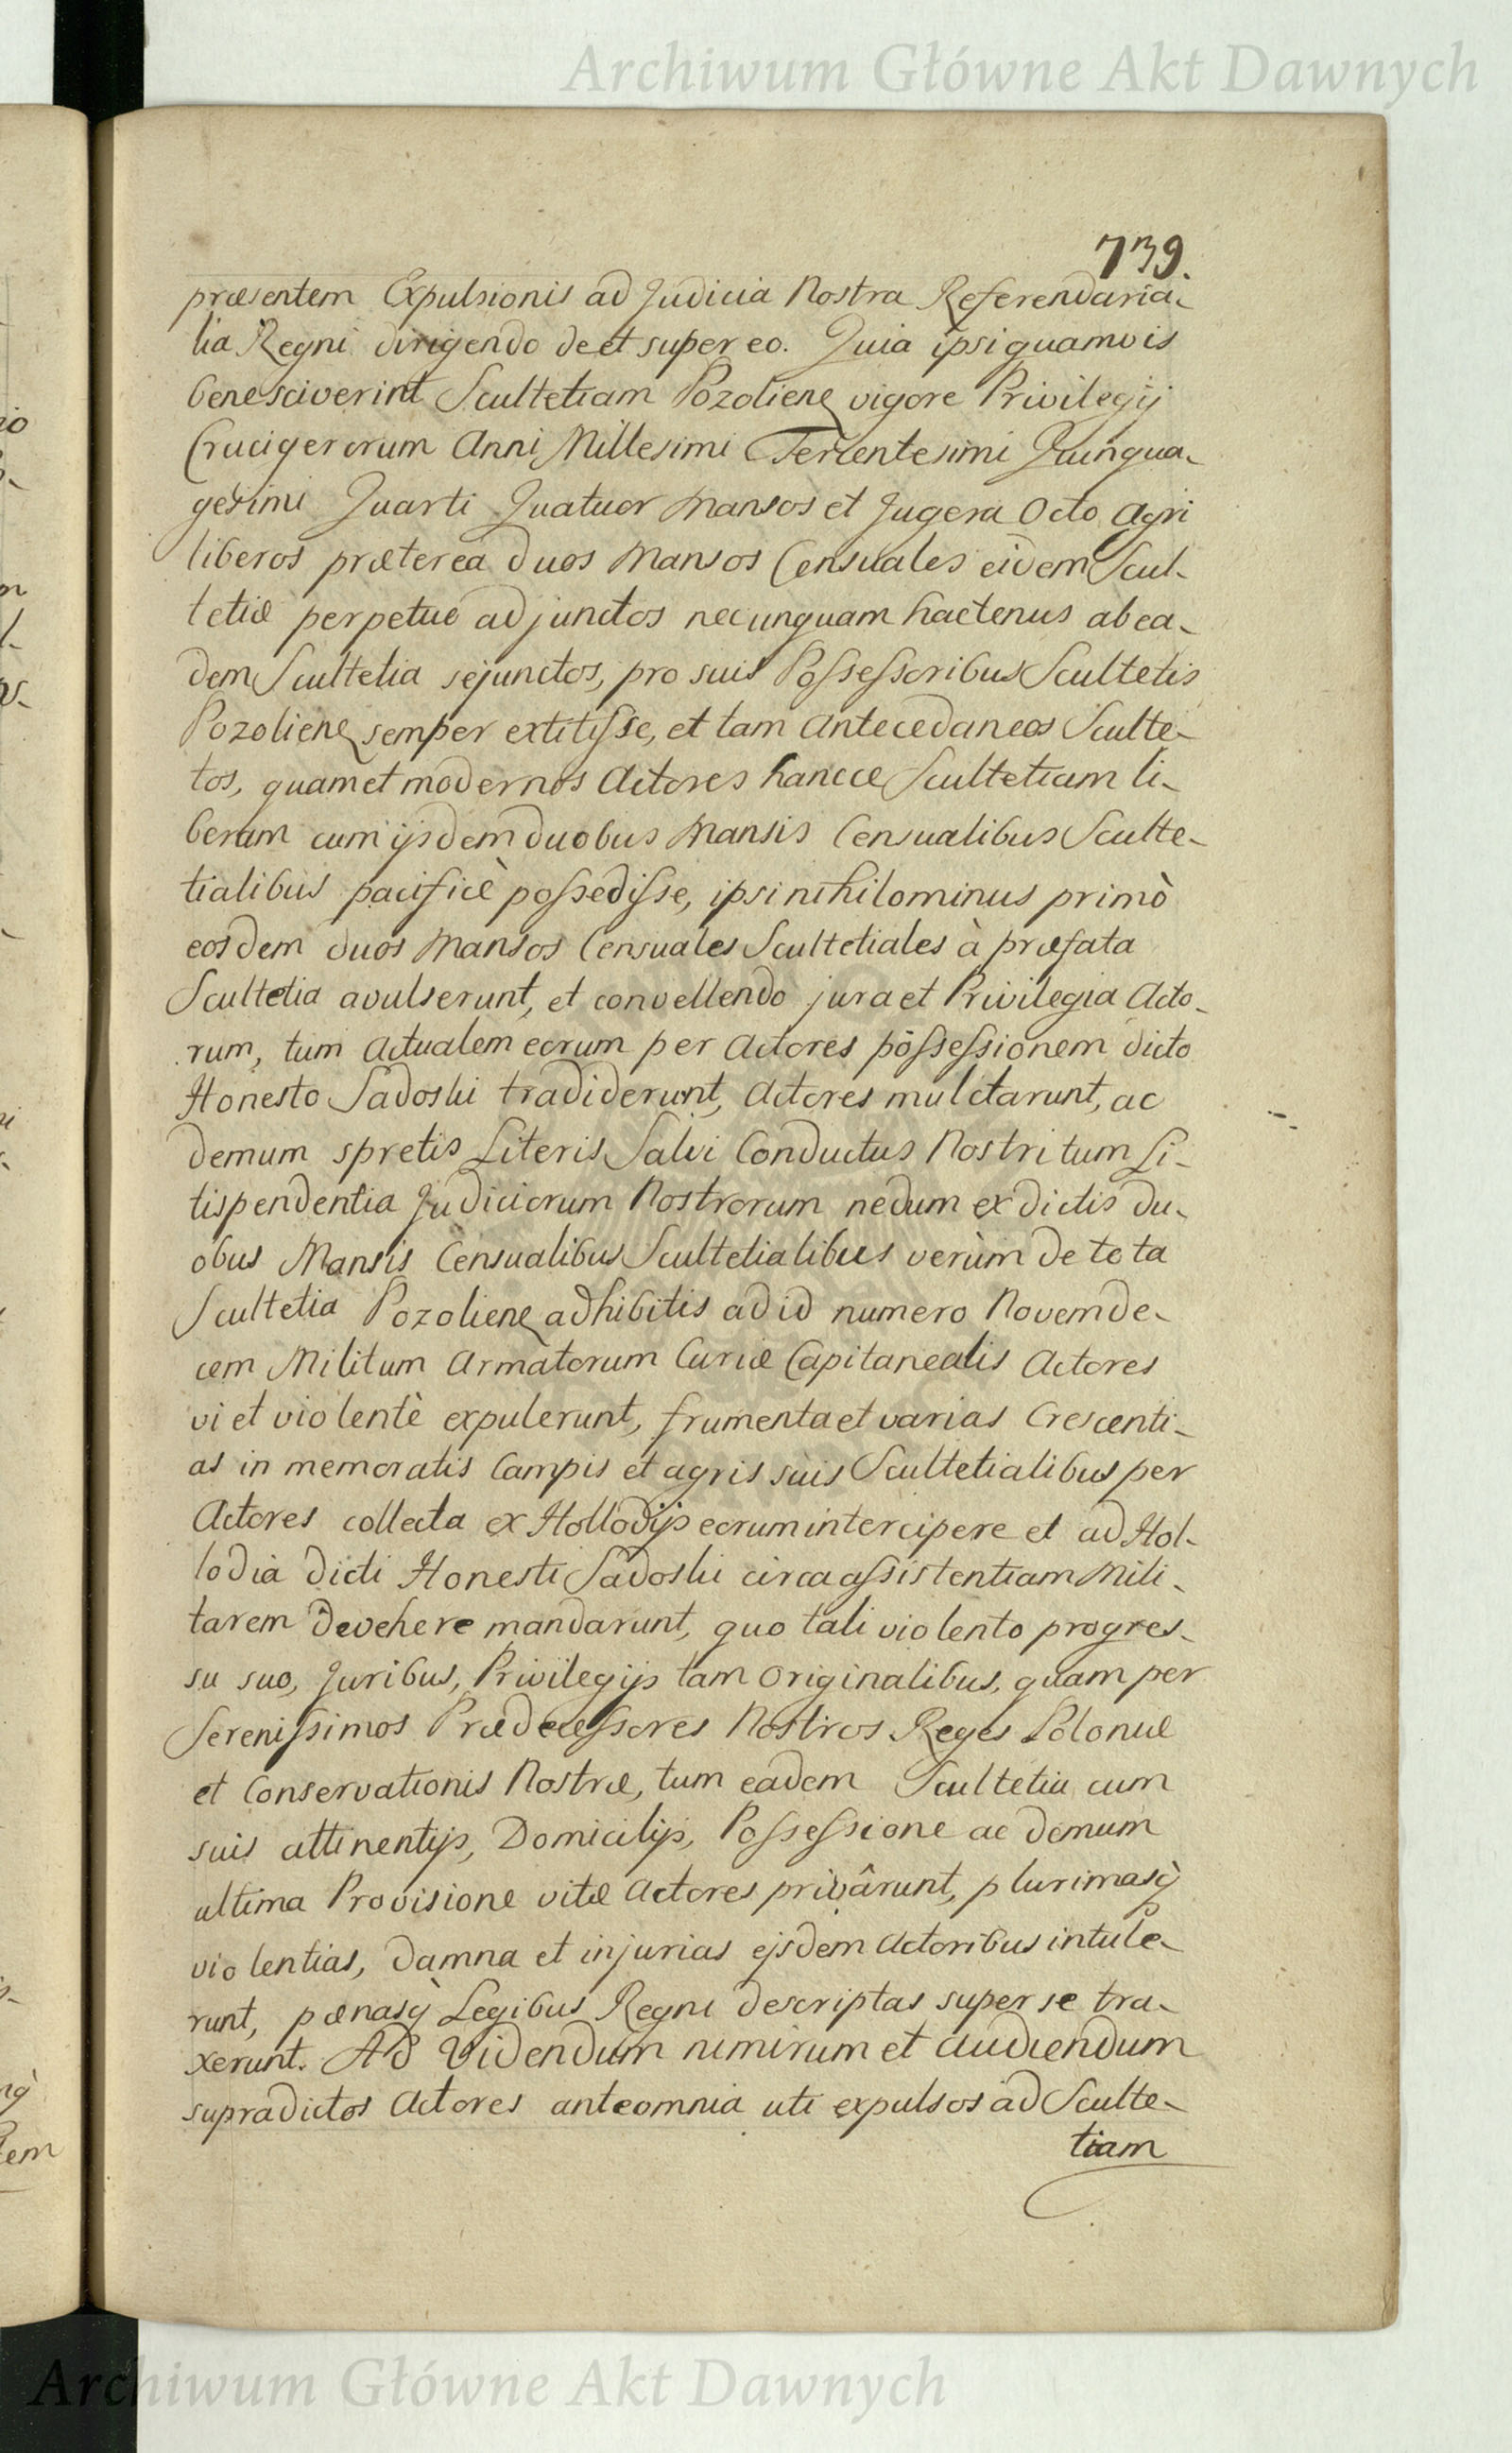 Archiwum Główne Akt Dawnych
739.
præsentem Expulsionis ad Judicia Nostra Referendaria-
lia Regni dirigendo de et super eo. Quia ipsi quamvis
bene sciverint Scultetiam Pozolienę vigore Privilegij
Crucigerorum Anni Millesimi Tercentesimi Quinqua-
gesimi Quarti Quatuor Mansos et Jugera Octo Agri
liberos præterea duos Mansos Censuales eidem Scul-
tetiæ perpetuo adjunctos nec unquam hactenus ab ea-
dem Scultetia sejunctos, pro suis Possessoribus Scultetis
Pozolienę semper extitisse, et tam Antecedaneos Sculte-
tos, quam et modernos Actores hancce Scultetiam li-
beram cum ijsdem duobus Mansis Censualibus Sculte-
tialibus pacificè possedisse, ipsi nihilominus primò
eosdem duos Mansos Censuales Scultetiales à præfata
Scultetia avulserunt, et convellendo jura et Privilegia Acto-
rum, tum Actualem eorum per Actores possessionem dicto
Honesto Sadoski tradiderunt, Actores mulctarunt, ac
demum spretis Literis Salvi Conductus Nostri tum Li-
tispendentia Judiciorum Nostrorum nedum ex dictis du-
obus Mansis Censualibus Scultetialibus verùm de tota
Scultetia Pozolienę adhibitis ad id numero Novemde-
cem Militum Armatorum Curiæ Capitanealis Actores
vi et violentè expulerunt, frumenta et varias Crescenti-
as in memoratis Campis et agris suis Scultetialibus per
Actores collecta ex Hollodijs eorum intercipere et ad Hol-
lodia dicti Honesti Sadoski circa assistentiam Mili-
tarem devehere mandarunt, quo tali violento progres-
su suo, Juribus, Privilegijs tam Originalibus, quam per
Serenissimos Prædecessores Nostros Reges Poloniæ
et Conservationis Nostræ, tum eadem Scultetia cum
suis attinentijs, Domicilijs, Possessione ac demum
ultima Provisione vitæ Actores privârunt, plurimasq̀
violentias, damna et injurias ejsdem Actoribus intule-
runt, pænasq̀ Legibus Regni descriptas super se tra-
xerunt. Ad Videndum nimirum et audiendum
supradictos Actores ante omnia uti expulsos ad Sculte-
tiam
Archiwum Główne Akt Dawnych